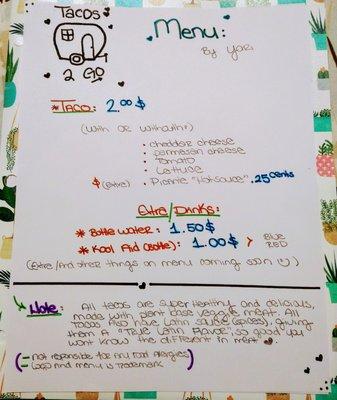 Tacos
2 Go
Menu:
By Yari
* Taco: 2.00$
(with or without:)
• cheddar cheese
• parmesan cheese
• Tomato
• Lettuce
$ (extra) • Picante "Hot sauce" .25 cents
Extra/Drinks:
* Bottle water: 1.50$
* Kool Aid (bottle): 1.00$ > BLUE
RED
(Extra/And other things on menu coming soon ☺)
Note: All tacos are super healthy and delicious,
made with plant base veggie meat. All
Tacos Also have Latin sauce (spices), giving
them A "True Latin Flavor", so good you
wont know the different in meat
(- Not responsible for any food Allergies
Logo and menu is trademark)